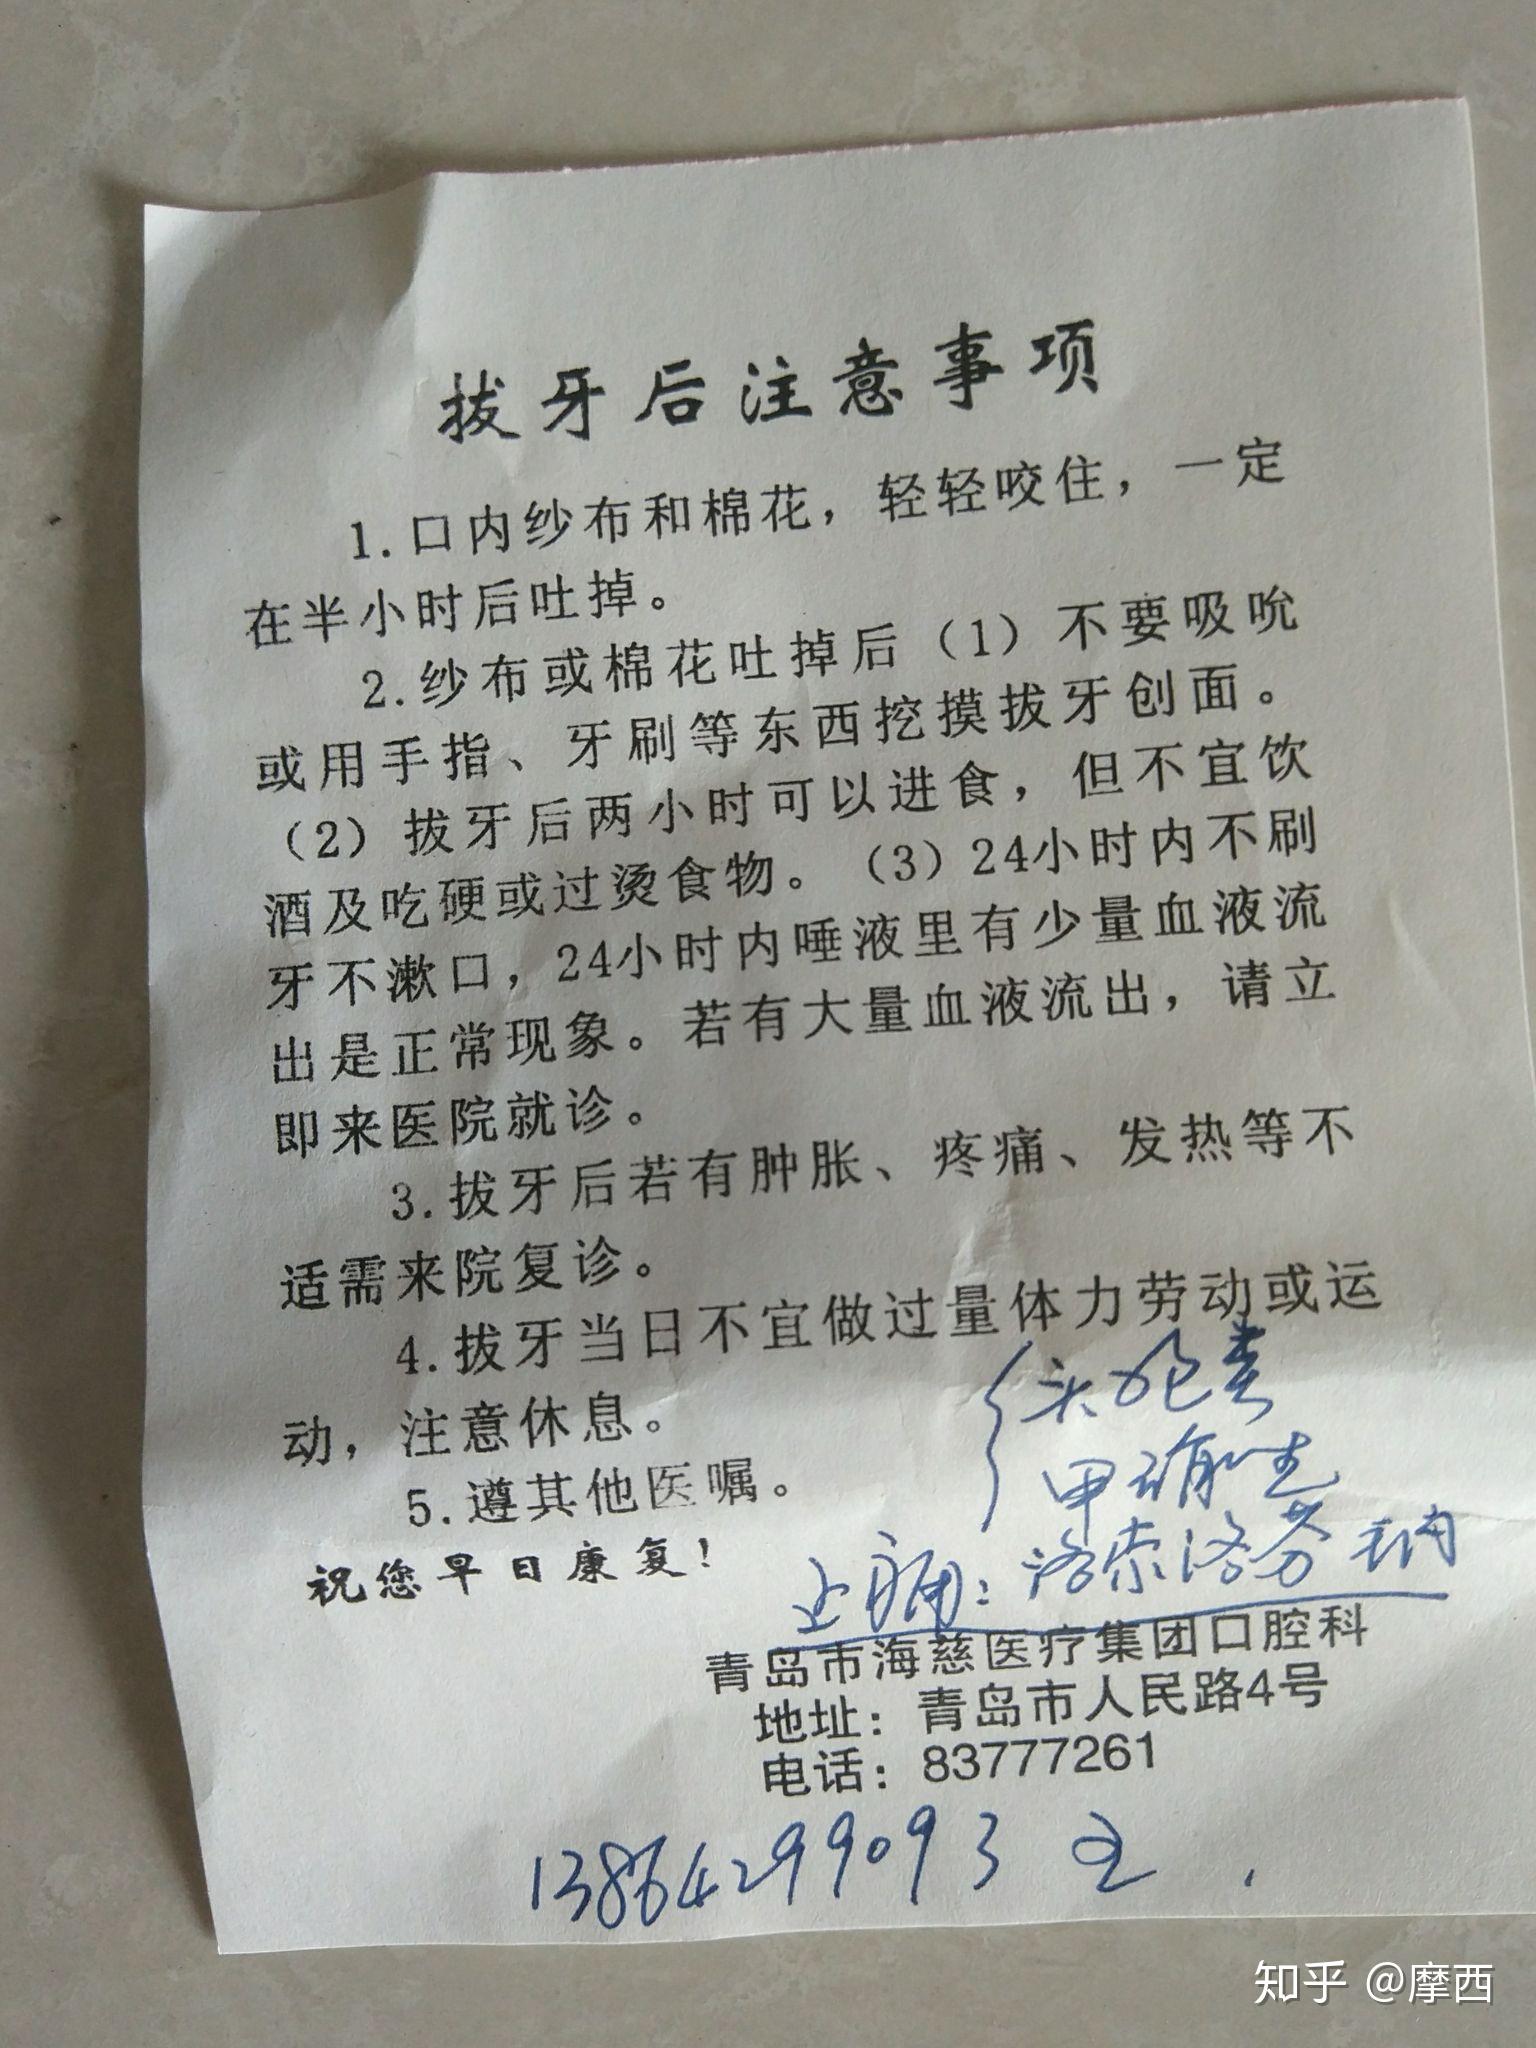 拔牙后注意事项
1.口内纱布和棉花，轻轻咬住，一定
在半小时后吐掉。
2.纱布或棉花吐掉后（1）不要吸吮
或用手指、牙刷等东西挖摸拔牙创面。
（2）拔牙后两小时可以进食，但不宜饮
酒及吃硬或过烫食物。（3）24小时内不刷
牙不漱口，24小时内唾液里有少量血液流
出是正常现象。若有大量血液流出，请立
即来医院就诊。
3.拔牙后若有肿胀、疼痛、发热等不
适需来院复诊。
4.拔牙当日不宜做过量体力劳动或运
动，注意休息。
5.遵其他医嘱。
祝您早日康复！
头孢类
甲硝唑
止痛：洛索洛芬钠
青岛市海慈医疗集团口腔科
地址：青岛市人民路4号
电话：83777261
13864299093
知乎 @摩西